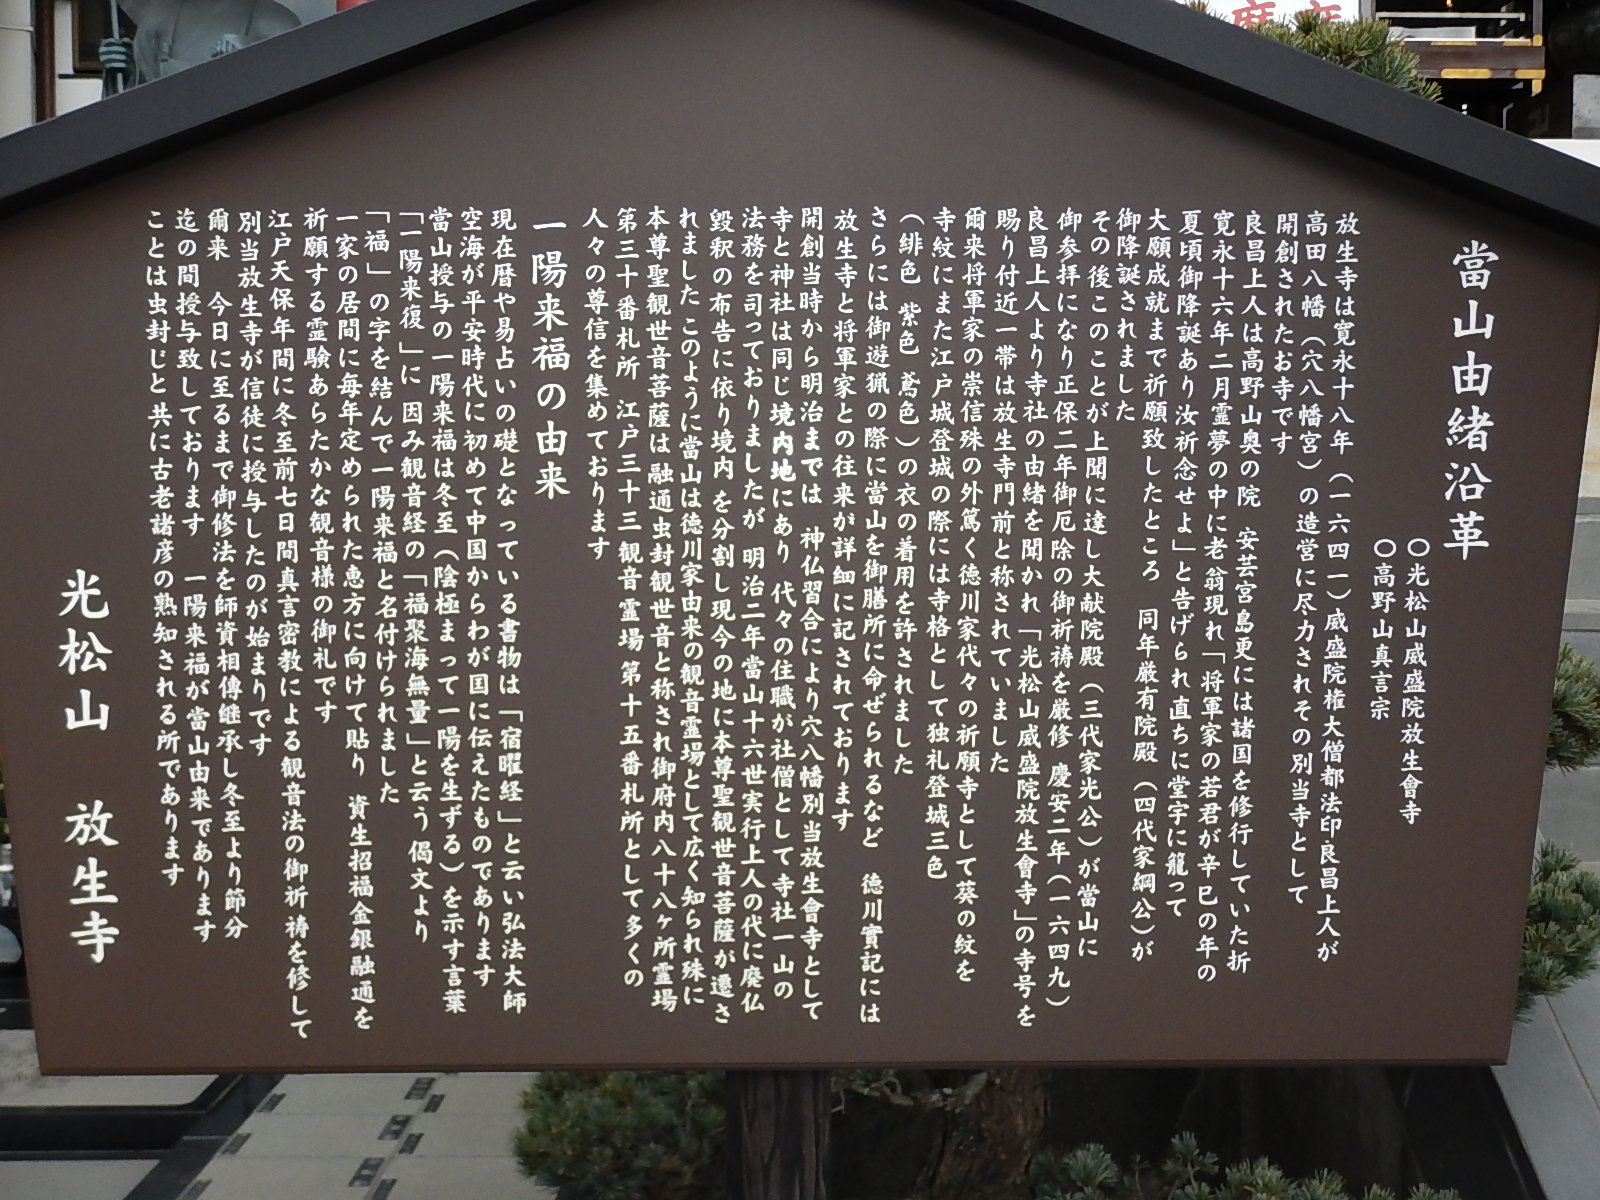 當山由緒沿革
〇光松山威盛院放生會寺
〇高野山真言宗
放生寺は寛永十八年（一六四一）威盛院権大僧都法印良昌上人が
高田八幡（穴八幡宮）の造営に尽力されその別当寺として
開創されたお寺です
良昌上人は高野山奥の院　安芸宮島更には諸国を修行していた折
寛永十六年二月霊夢の中に老翁現れ「将軍家の若君が辛巳の年の
夏頃御降誕あり汝祈念せよ」と告げられ直ちに堂宇に籠って
大願成就まで祈願致したところ　同年厳有院殿（四代家綱公）が
御降誕されました
その後このことが上聞に達し大献院殿（三代家光公）が當山に
御参拝になり正保二年御厄除の御祈祷を厳修　慶安二年（一六四九）
良昌上人より寺社の由緒を聞かれ「光松山威盛院放生會寺」の寺号を
賜り付近一帯は放生寺門前と称されていました
爾来将軍家の崇信殊の外篤く徳川家代々の祈願寺として葵の紋を
寺紋にまた江戸城登城の際には寺格として独礼登城三色
（緋色　紫色　鳶色）の衣の着用を許されました
さらには御遊猟の際に當山を御膳所に命ぜられるなど　徳川實記には
放生寺と将軍家との往来が詳細に記されております
開創当時から明治までは　神仏習合により穴八幡別当放生會寺として
寺と神社は同じ境内地にあり　代々の住職が社僧として寺社一山の
法務を司っておりましたが　明治二年當山十六世実行上人の代に廃仏
毀釈の布告に依り境内を分割し現今の地に本尊聖観世音菩薩が遷さ
れました　このように當山は徳川家由来の観音霊場として広く知られ殊に
本尊聖観世音菩薩は融通虫封観世音と称され御府内八十八ヶ所霊場
第三十番札所　江戸三十三観音霊場第十五番札所として多くの
人々の尊信を集めております
一陽来福の由来
現在暦や易占いの礎となっている書物は「宿曜経」と云い弘法大師
空海が平安時代に初めて中国からわが国に伝えたものであります
當山授与の一陽来福は冬至（陰極まって一陽を生ずる）を示す言葉
「一陽来復」に　因み観音経の「福聚海無量」と云う偈文より
「福」の字を結んで一陽来福と名付けられました
一家の居間に毎年定められた恵方に向けて貼り　資生招福金銀融通を
祈願する霊験あらたかな観音様の御礼です
江戸天保年間に冬至前七日間真言密教による観音法の御祈祷を修して
別当放生寺が信徒に授与したのが始まりです
爾来　今日に至るまで御修法を師資相傳継承し冬至より節分
迄の間授与致しております　一陽来福が當山由来であります
ことは虫封じと共に古老諸彦の熟知される所であります
光松山　放生寺